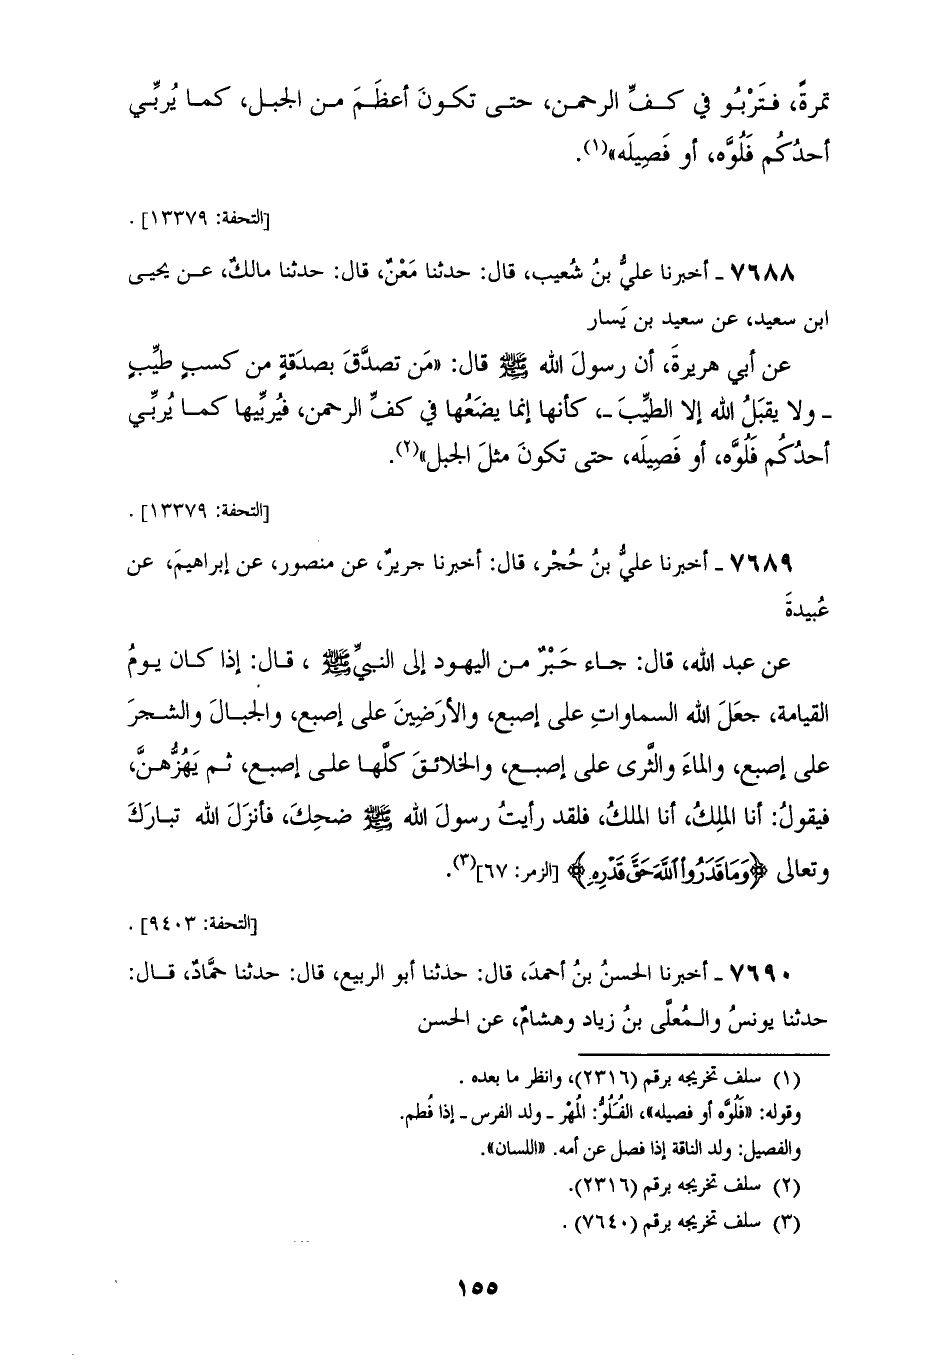 تمرةً، فتَرْبُو في كفِّ الرحمن، حتى تكونَ أعظَمَ من الجبل، كما يُربِّي
أحدُكُم فَلُوَّه، أو فَصِيلَه»(١).
[التحفة: ١٣٣٧٩] .
٧٦٨٨ ـ أخبرنا عليُّ بنُ شُعيب، قال: حدثنا مَعْنٌ، قال: حدثنا مالكٌ، عن يحيى
ابن سعيد، عن سعيد بن يَسار
عن أبي هريرةَ، أن رسولَ الله ﷺ قال: «مَن تصدَّقَ بصدَقةٍ من كسبٍ طيِّبٍ
ـ ولا يقبَلُ الله إلا الطيِّبَ ـ، كأنها إنما يضَعُها في كفِّ الرحمن، فيُربِّيها كما يُربِّي
أحدُكُم فَلُوَّه، أو فَصِيلَه، حتى تكونَ مثلَ الجبل»(٢).
[التحفة: ١٣٣٧٩] .
٧٦٨٩ ـ أخبرنا عليُّ بنُ حُجْر، قال: أخبرنا جريرٌ، عن منصور، عن إبراهيمَ، عن
عُبيدةَ
عن عبد الله، قال: جاء حَبْرٌ من اليهود إلى النبيِّ ﷺ ، قال: إذا كان يومُ
القيامة، جعَلَ الله السماواتِ على إصبع، والأرَضِينَ على إصبع، والجبالَ والشجرَ
على إصبع، والماءَ والثَّرى على إصبع، والخلائقَ كلَّها على إصبع، ثم يَهُزُّهنَّ،
فيقولُ: أنا الملِكُ، أنا الملكُ، فلقد رأيتُ رسولَ الله ﷺ ضحِكَ، فأنزَلَ الله تبارَكَ
وتعالى ﴿وَمَا قَدَرُوا۟ ٱللَّهَ حَقَّ قَدْرِهِۦ﴾ [الزمر: ٦٧](٣).
[التحفة: ٩٤٠٣] .
٧٦٩٠ ـ أخبرنا الحسنُ بنُ أحمدَ، قال: حدثنا أبو الربيع، قال: حدثنا حمَّادٌ، قال:
حدثنا يونسُ والمُعلَّى بنُ زياد وهشامٌ، عن الحسن
(١) سلف تخريجه برقم (٢٣١٦)، وانظر ما بعده .
وقوله: «فَلُوَّه أو فصيله»، الفُلُوُّ: المُهْر ـ ولد الفرس ـ إذا فُطم.
والفصيل: ولد الناقة إذا فصل عن أمه. «اللسان».
(٢) سلف تخريجه برقم (٢٣١٦).
(٣) سلف تخريجه برقم (٧٦٤٠) .
١٥٥